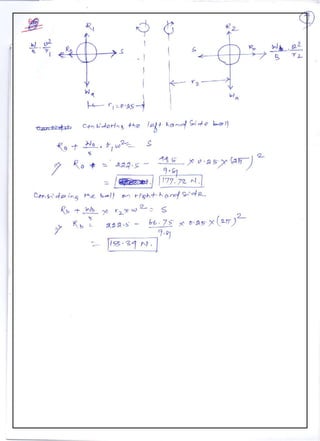 R₁ R₂
W/g v²/r₁ Rₐ S S R_b W_b/g v²/r₂
Wₐ Wₐ
r₁=0.25 r₂
Considering the left hand side ball
Rₐ + Wₐ/g · r₁ω² = S
⇒ Rₐ = 222.5 − 44.5/9.81 × 0.25 × (2π)²
= 177.72 N.
Considering the ball on right-hand side
R_b + W_b/g × r₂ × ω² = S
⇒ R_b = 222.5 − 66.75/9.81 × 0.25 × (2π)²
= 155.39 N.